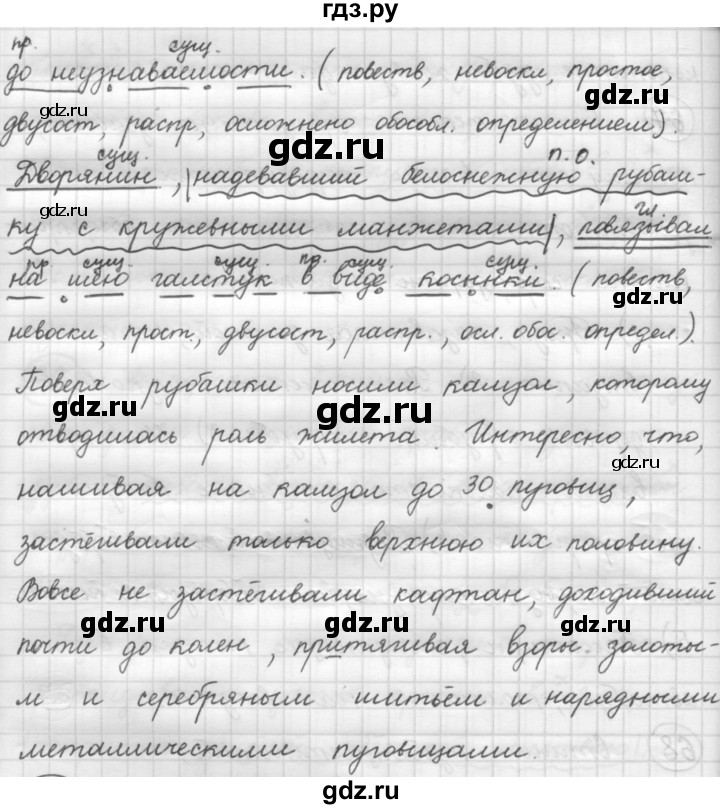 гдз.ру
пр. сущ.
до неузнаваемости. (повеств, невоскл, простое,
gdz.ru gdz.ru
двусост, распр, осложнено обособл. определением).
gdz.ru
сущ. п.о.
Дворянин, |надевавший белоснежную рубаш-
гл
ку с кружевными манжетами|, повязывал
gdz.ru gdz.ru
пр. сущ. сущ. пр. сущ. сущ.
на шею галстук в виде косынки. (повеств,
gdz.ru
невоскл, прост., двусост, распр., осл. обос. определ.).
Поверх рубашки носили камзол, которому
gdz.ru gdz.ru
отводилась роль жилета. Интересно, что,
gdz.ru
нашивая на камзол до 30 пуговиц,
gdz.ru
застёгивали только верхнюю их половину.
Вовсе не застёгивали кафтан, доходивший
gdz.ru gdz.ru gdz.ru
почти до колен, притягивая взоры золоты-
м и серебряным шитьём и нарядными
gdz.ru gdz.ru
металлическими пуговицами.
68